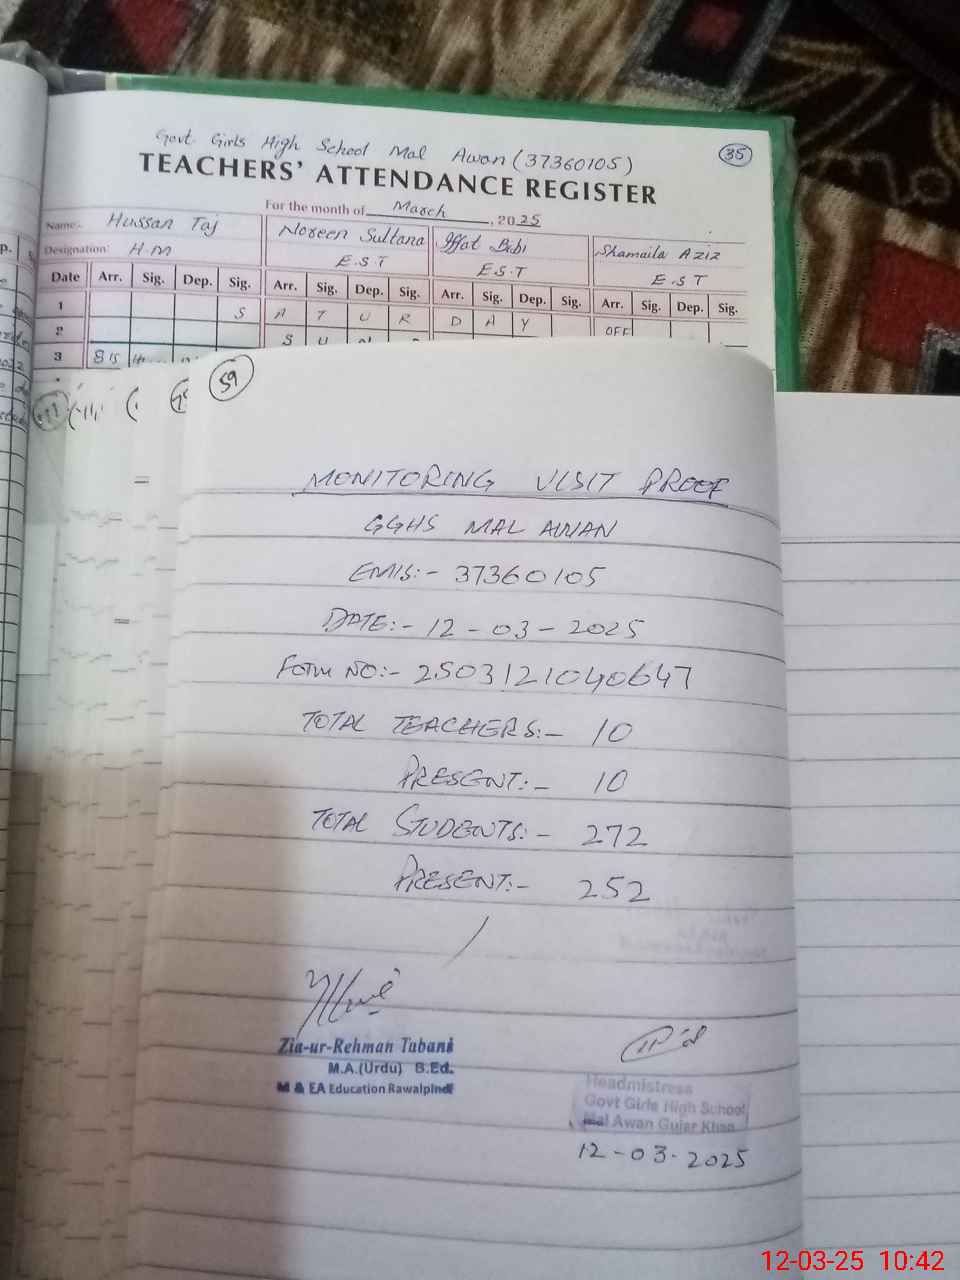 Govt. Girls High School Mal Awan (37360105)
35
TEACHERS' ATTENDANCE REGISTER
For the month of March, 2025
Name: Hussan Taj
Noreen Sultana
Iffat Bibi
Shamaila Aziz
Designation: H.M
E.S.T
E.S.T
E.S.T
Date Arr. Sig. Dep. Sig. Arr. Sig. Dep. Sig. Arr. Sig. Dep. Sig. Arr. Sig. Dep. Sig.
1 S A T U R D A Y OFF
2 S U
3 815
59
MONITORING VISIT PROOF
GGHS MAL AWAN
EMIS:- 37360105
DATE:- 12-03-2025
Form NO:- 2503121040647
TOTAL TEACHERS:- 10
PRESENT:- 10
TOTAL STUDENTS:- 272
PRESENT:- 252
Zia-ur-Rehman Tabani
M.A.(Urdu) B.Ed.
M & EA Education Rawalpindi
Headmistress
Govt Girls High School
Mal Awan Gujar Khan
12-03-2025
12-03-25 10:42